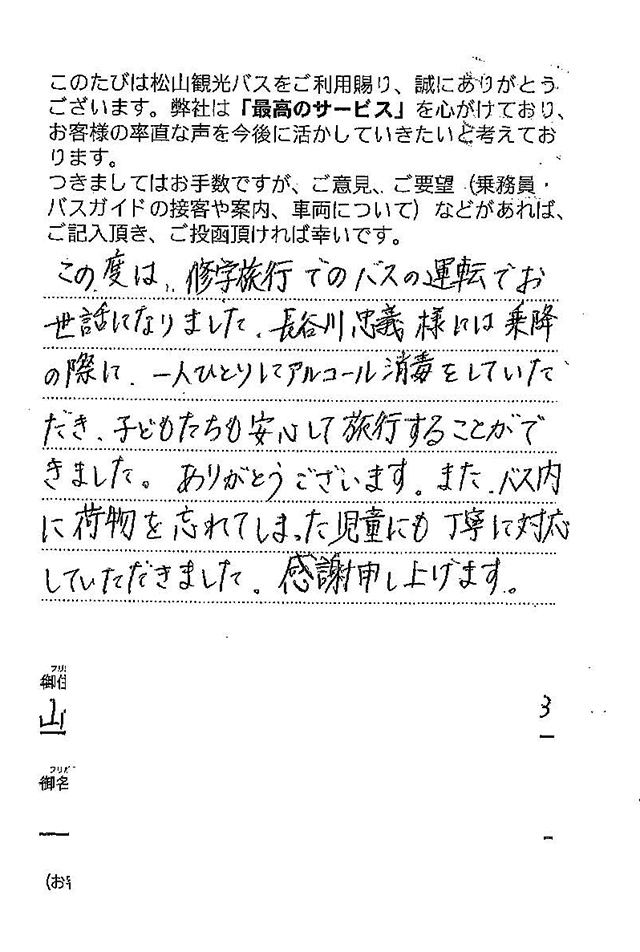 このたびは松山観光バスをご利用賜り、誠にありがとう
ございます。弊社は「最高のサービス」を心がけており、
お客様の率直な声を今後に活かしていきたいと考えてお
ります。
つきましてはお手数ですが、ご意見、ご要望（乗務員・
バスガイドの接客や案内、車両について）などがあれば、
ご記入頂き、ご投函頂ければ幸いです。
この度は、修学旅行でのバスの運転でお
世話になりました。長谷川忠義様には乗降
の際に、一人ひとりにアルコール消毒をしていた
だき、子どもたちも安心して旅行することがで
きました。ありがとうございます。また、バス内
に荷物を忘れてしまった児童にも丁寧に対応
していただきました。感謝申し上げます。
フリ
御住
山 3
フリガ
御名
(お